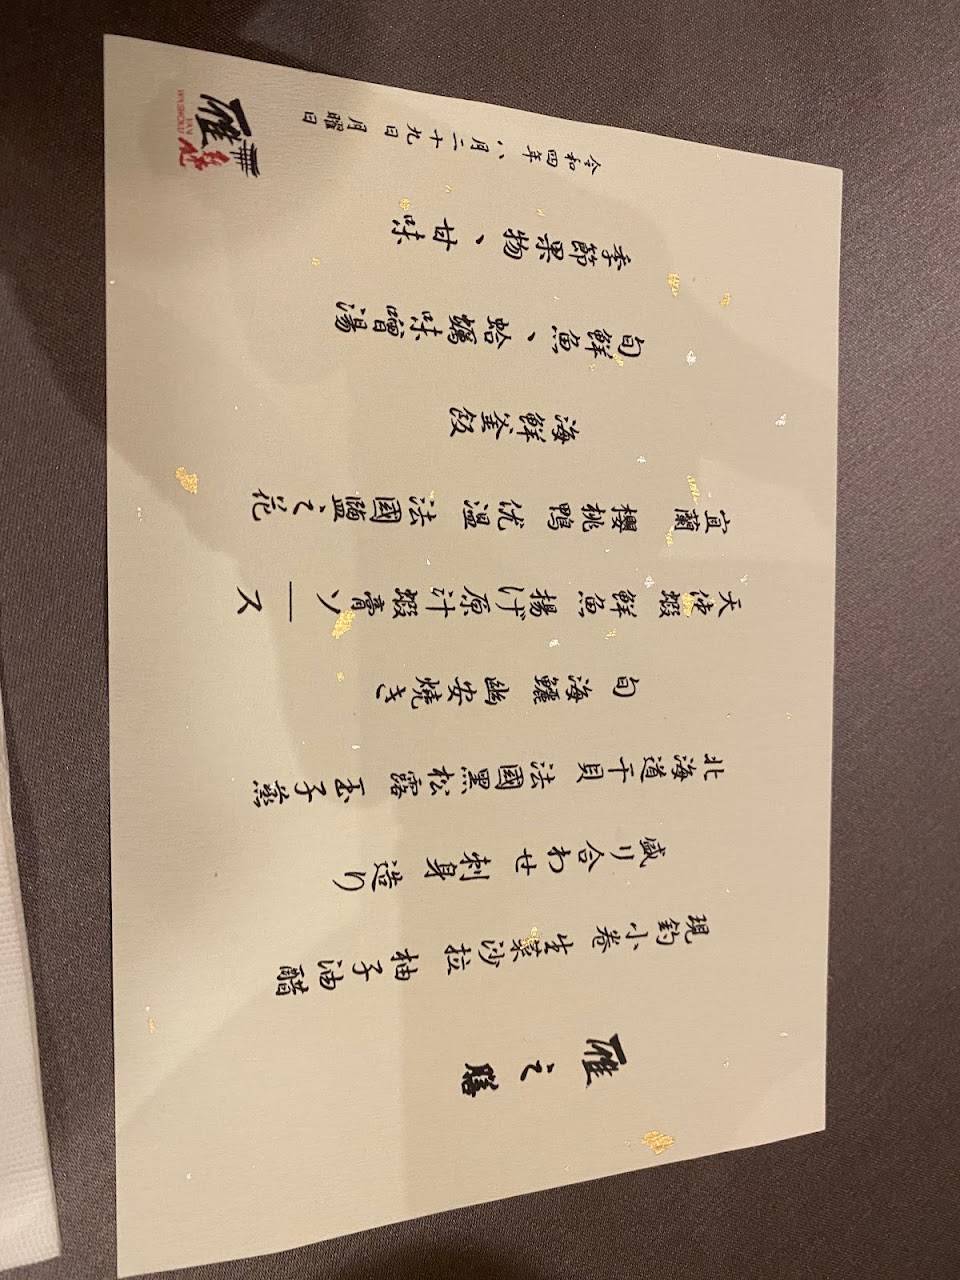 雁之膳
現釣小卷生菜沙拉 柚子油醋
盛り合わせ刺身造り
北海道干貝法國黑松露 玉子蒸
旬海鱺幽安焼き
天使蝦鮮魚揚げ原汁蝦膏ソース
宜蘭櫻桃鴨低溫法國鹽之花
海鮮釜飯
旬鮮魚、蛤蠣味噌湯
季節果物、甘味
令和四年八月二十九日月曜日
雁
YAN
WASHOKU